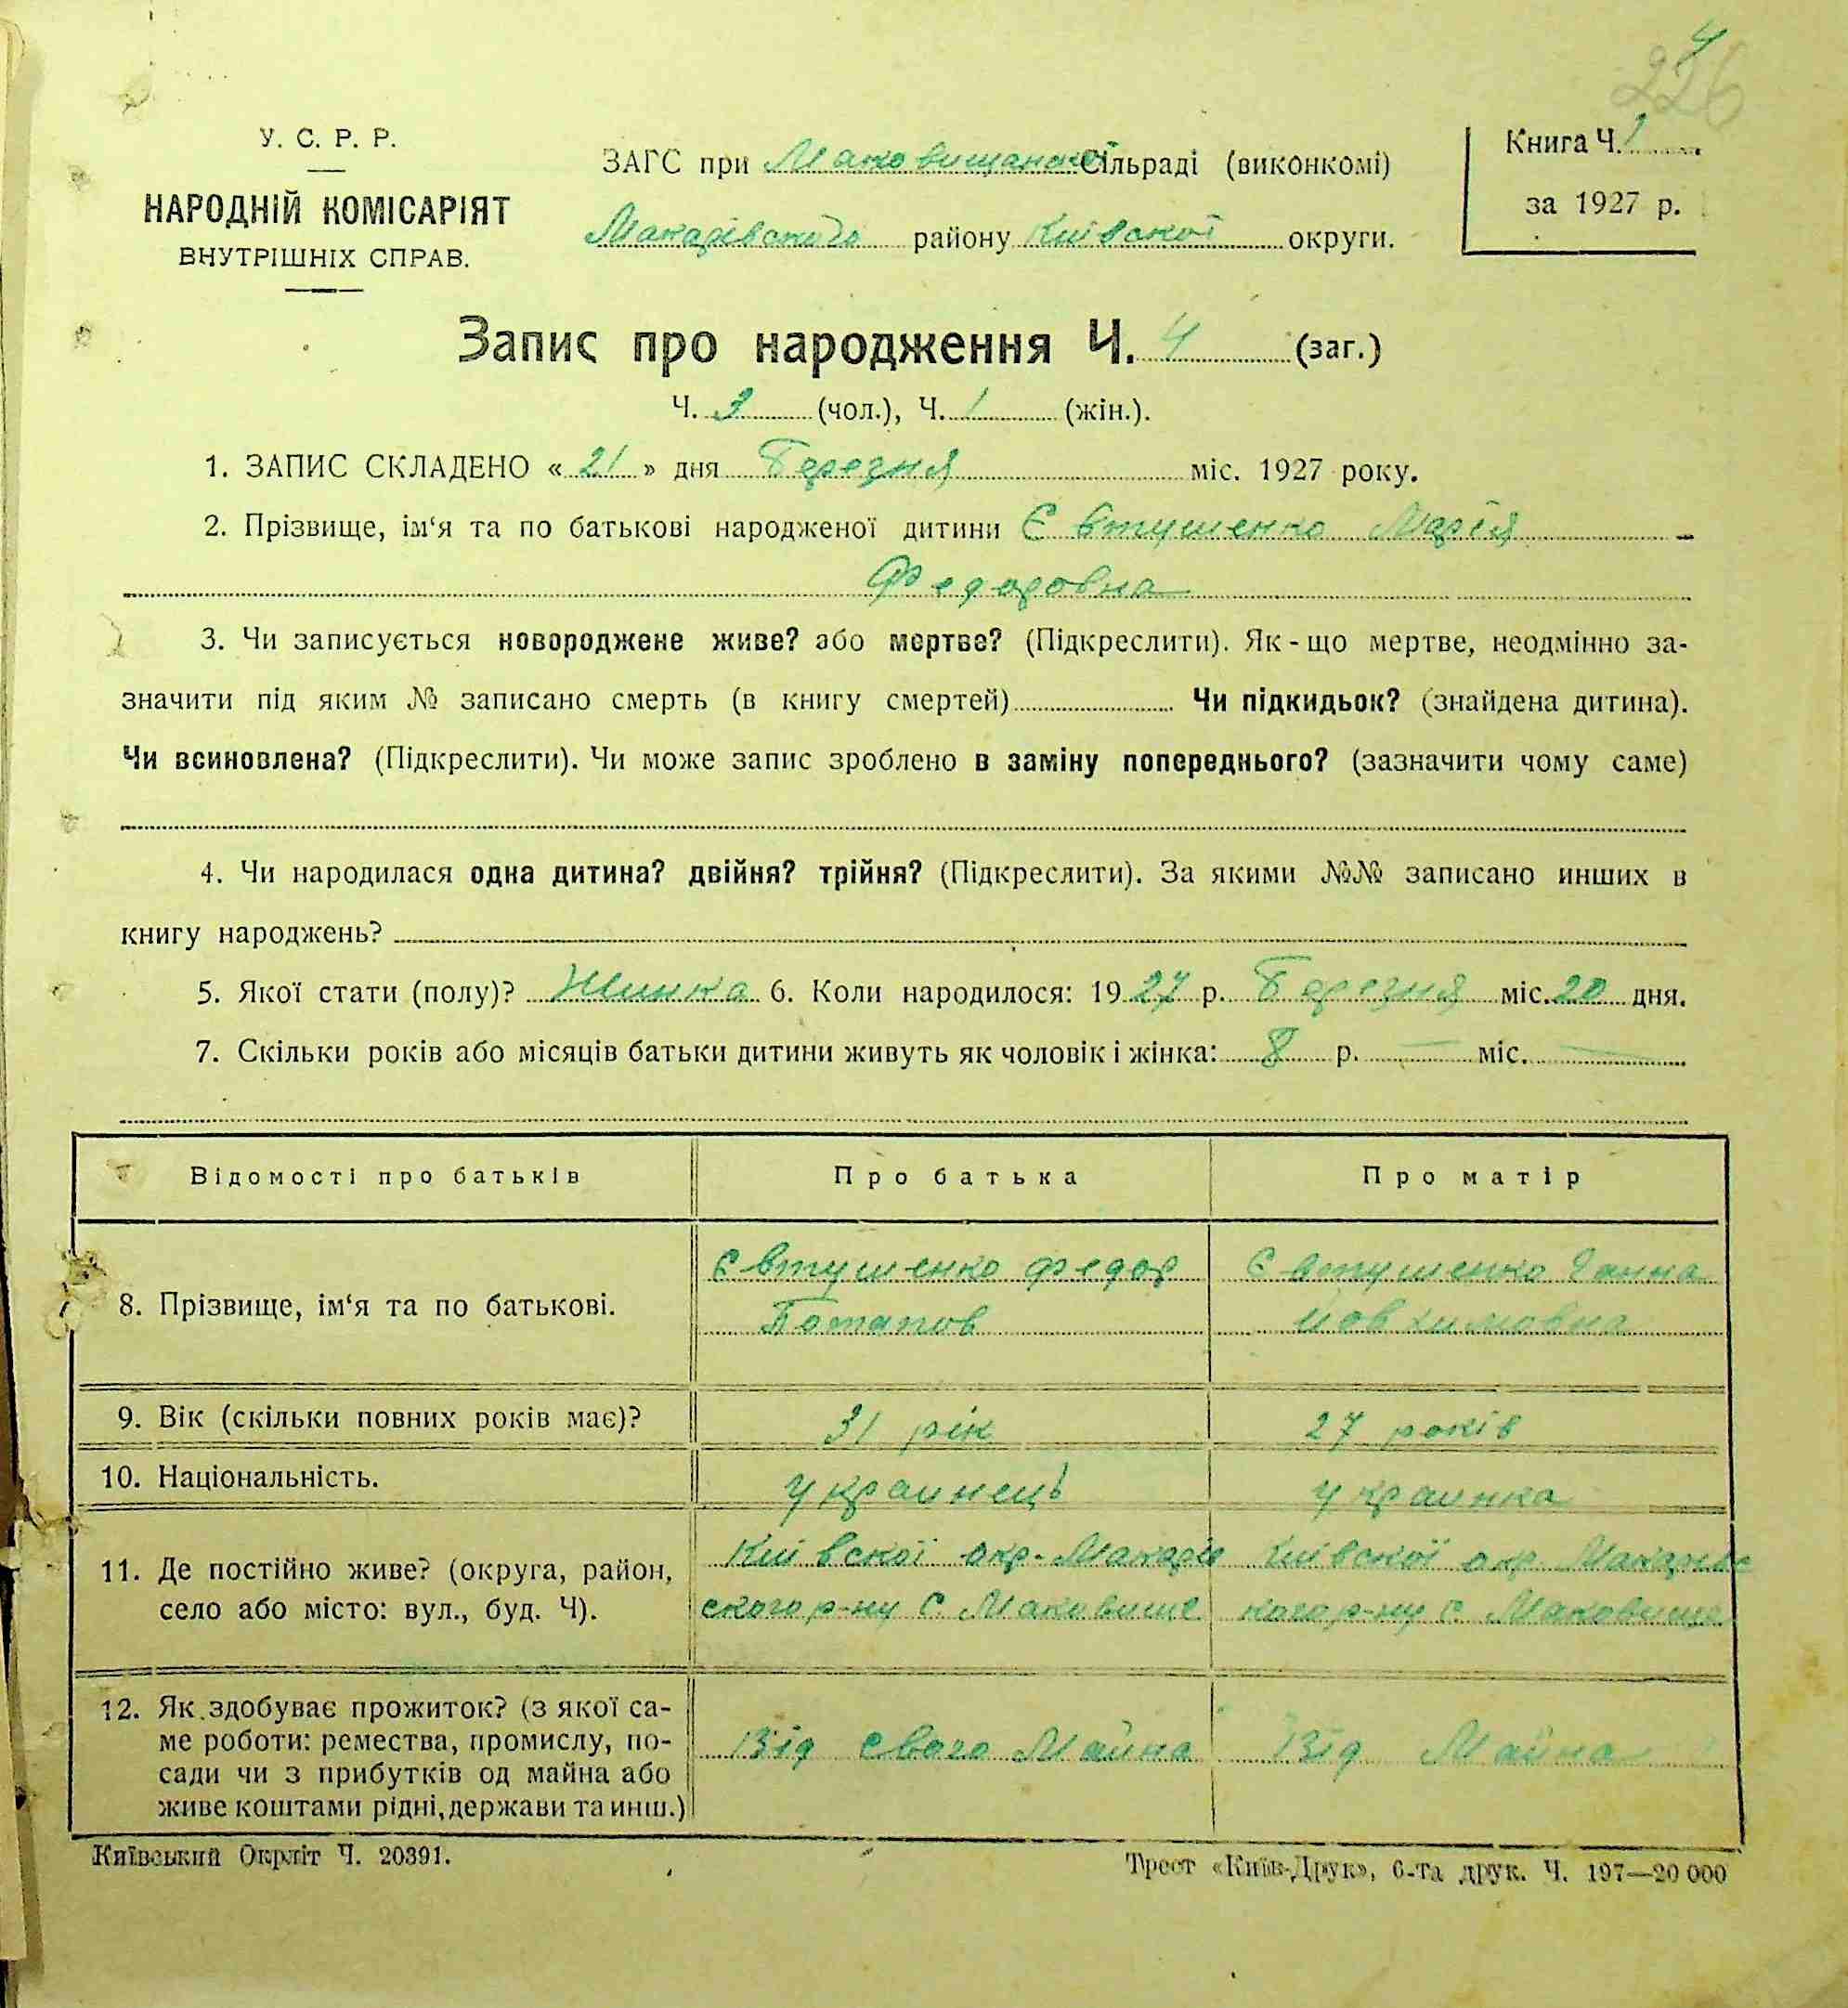 4
226
У. С. Р. Р.
НАРОДНІЙ КОМІСАРІЯТ
ВНУТРІШНІХ СПРАВ.
ЗАГС при Маковищанській Сільраді (виконкомі)
Макарівского району Київскої округи.
Книга Ч. 1
за 1927 р.
Запис про народження Ч. 4 (заг.)
Ч. 3 (чол.), Ч. 1 (жін.).
1. ЗАПИС СКЛАДЕНО « 21 » дня Березня міс. 1927 року.
2. Прізвище, ім‘я та по батькові народженої дитини Євтушенко Марія
Федоровна
3. Чи записується новороджене живе? або мертве? (Підкреслити). Як-що мертве, неодмінно за-
значити під яким № записано смерть (в книгу смертей) Чи підкидьок? (знайдена дитина).
Чи всиновлена? (Підкреслити). Чи може запис зроблено в заміну попереднього? (зазначити чому саме)
4. Чи народилася одна дитина? двійня? трійня? (Підкреслити). За якими №№ записано инших в
книгу народжень?
5. Якої стати (полу)? Жинка 6. Коли народилося: 1927 р. Березня міс. 20 дня.
7. Скільки років або місяців батьки дитини живуть як чоловік і жінка: 8 р. — міс. —
Відомості про батьків Про батька Про матір
8. Прізвище, ім‘я та по батькові.
Євтушенко Федор
Потапов
Євтушенко Ганна
Йовхимовна
9. Вік (скільки повних років має)? 31 рік 27 років
10. Національність. украинець украинка
11. Де постійно живе? (округа, район,
село або місто: вул., буд. Ч).
Київскої окр. Макарів
ского р-ну с. Маковище
Київскої окр. Макаривс
кого р-ну с. Маковище
12. Як здобуває прожиток? (з якої са-
ме роботи: ремества, промислу, по-
сади чи з прибутків од майна або
живе коштами рідні, держави та инш.)
Від свого Майна
Від Майна
Київський Окрліт Ч. 20391.
Трест «Київ-Друк», 6-та друк. Ч. 197—20 000